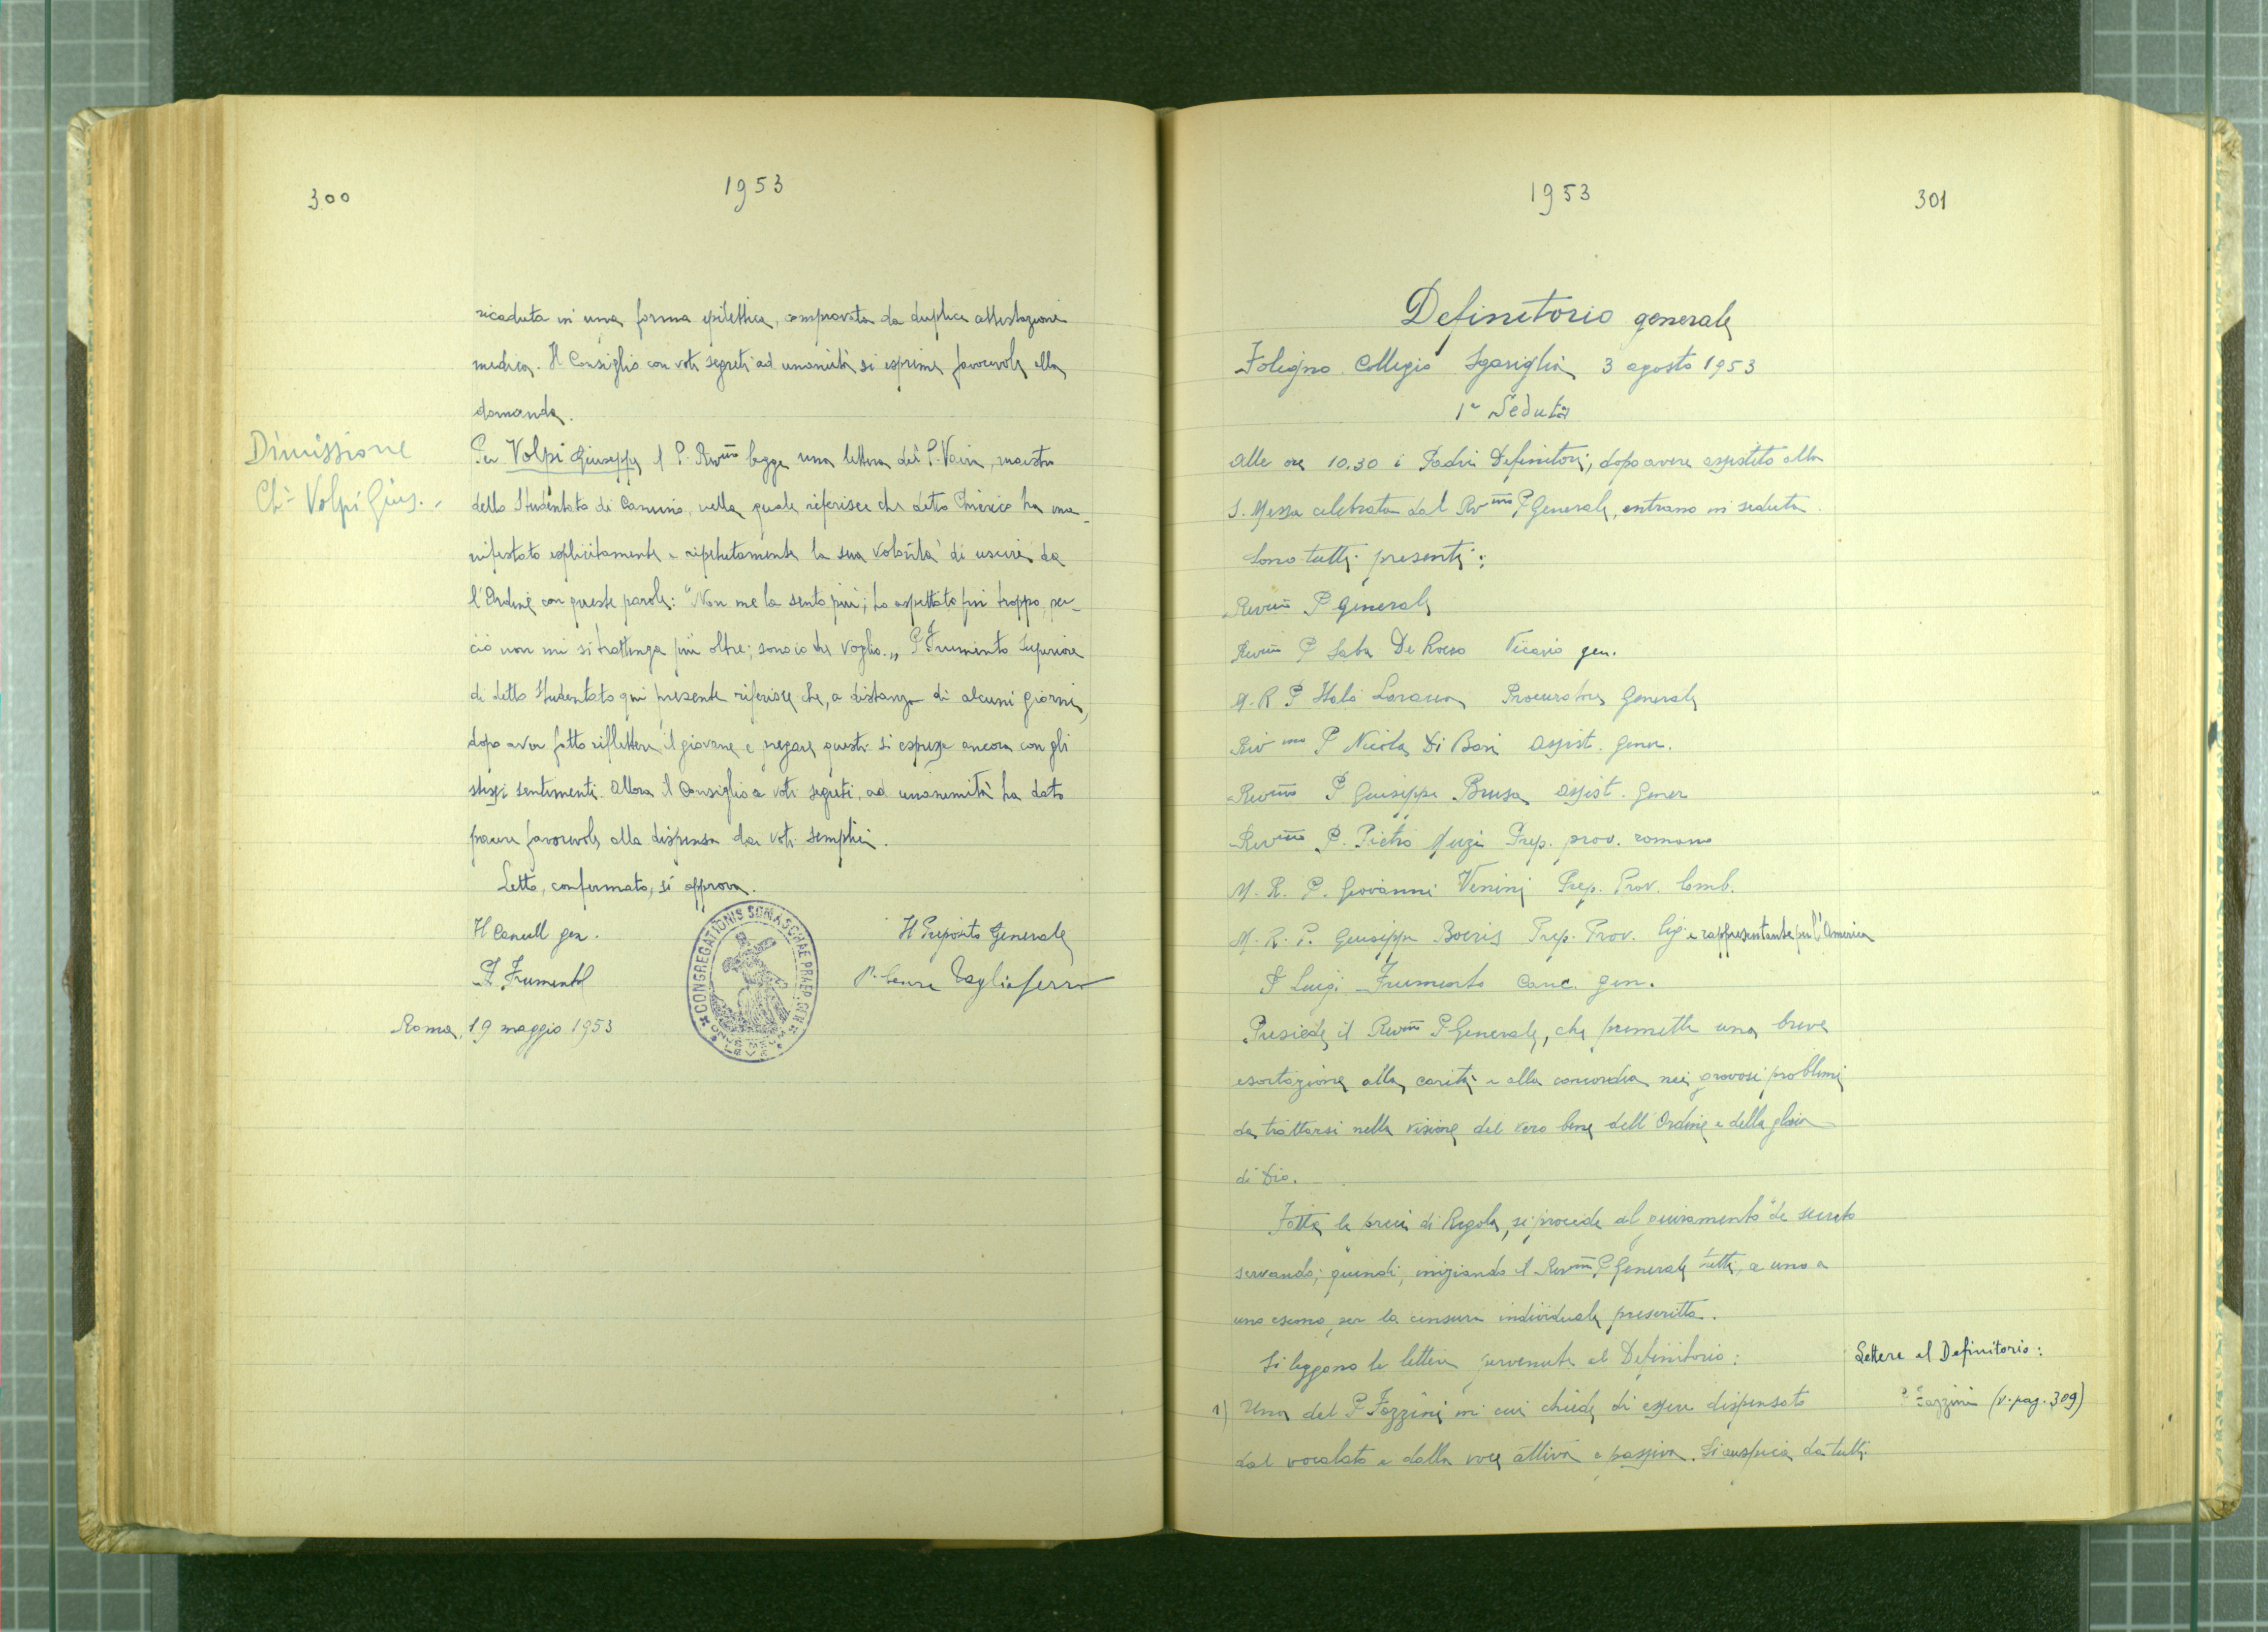 300
1953
ricaduta in una forma epilettica, comprovata da duplice attestazione
medica. Il Consiglio con voti segreti ad unanimità si esprime favorevole alla
domanda.
Dimissione
Ch. Volpi Gius. -
Per Volpi Giuseppe il P. Rev.mo legge una lettera del P. Vaira, maestro
dello Studentato di Camino, nella quale riferisce che detto Chierico ha ma-
nifestato esplicitamente e ripetutamente la sua volontà di uscire da
l'Ordine con queste parole: "Non me la sento più; ho aspettato fin troppo, per-
ciò non mi si trattenga più oltre; sono io che voglio." P. Frumento Superiore
di detto Studentato qui presente riferisce che, a distanza di alcuni giorni,
dopo aver fatto riflettere il giovane e pregare questi si espresse ancora con gli
stessi sentimenti. Allora il Consiglio a voti segreti, ad unanimità ha dato
parere favorevole alla dispensa dai voti semplici.
Letto, confermato, si approva.
Il Cancell gen.
Il Preposito Generale
P. Frumento
P. Cesare Tagliaferro
CONGREGATIONIS SOMASCHAE PRAEP. GEN
ONUS MEUM
LEVE
Roma, 19 maggio 1953
1953
301
Definitorio generale
Foligno Collegio Sgariglia 3 agosto 1953
1a Seduta
Alle ore 10.30 i Padri Definitori, dopo avere assistito alla
S. Messa celebrata dal Rev.mo P. Generale, entrano in seduta.
Sono tutti presenti:
Rev.mo P Generale
Rev.mo P Saba De Rocco Vicario gen.
M. R P Italo Laracca Procuratore Generale
Rev.mo P Nicola Di Bari Assist. Gener.
Rev.mo P Giuseppe Brusa Assist. Gener
Rev.mo P. Pietro Muzi Prep. prov. romano
M. R. P. Giovanni Venini Prep. Prov. lomb.
M. R. P. Giuseppe Boeris Prep. Prov. lig. e rappresentante per l'America
P Luigi Frumento Canc. gen.
Presiede il Rev.mo P Generale, che premette una breve
esortazione alla carità e alla concordia nei gravosi problemi
da trattarsi nella visione del vero bene dell'Ordine e della gloria
di Dio.
Fatte le preci di Regola, si procede al giuramento de secreto
servando; quindi, iniziando il Rev.mo P Generale tutti, a uno a
uno escono, per la censura individuale prescritta.
Si leggono le lettere pervenute al Definitorio:
Lettere al Definitorio:
1) Una del P Fazzini in cui chiede di essere dispensato
P Fazzini (v. pag. 309)
dal vocalato e dalla voce attiva e passiva. Si auspica da tutti